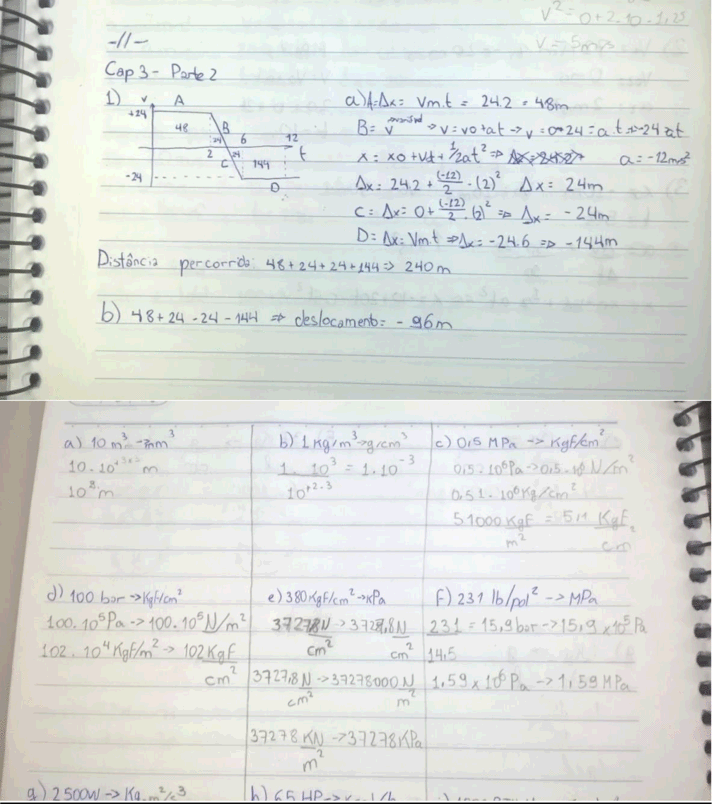 v² = 0+2.10.1,25
v = 5m/s
-//-
Cap 3 - Parte 2
1) v A
+24
48 B
24 6 12
2 24 t
C 144
-24
D
a) A = Δx = Vm.t = 24.2 = 48m
B = v → v = v0+at → v = 0-24 = a.t = -24 at
x = x0 + vt + 1/2at² ⇒ a = -12m/s²
Δx = 24.2 + (-12)/2 . (2)² Δx = 24m
C = Δx = 0 + (-12)/2 . (2)² ⇒ Δx = -24m
D = Δx = Vm.t ⇒ Δx = -24.6 ⇒ -144m
Distância percorrida: 48+24+24+144 ⇒ 240m
b) 48+24-24-144 ⇒ deslocamento = -96m
a) 10 m³ → mm³
10.10 m
10 m
b) 1 Kg/m³ → g/cm³
1. 10³ = 1.10⁻³
10⁺²·³
c) 0,5 MPa -> Kgf/cm²
0,5.10⁶Pa -> 0,5.10⁶ N/m²
0,51.10⁶Kg/cm²
51000 Kgf/m² = 5,1 Kgf/cm²
d) 100 bar -> Kgf/cm²
100.10⁵Pa -> 100.10⁵ N/m²
102.10⁴ Kgf/m² -> 102 Kgf/cm²
e) 380 Kgf/cm² -> KPa
37278N/cm² -> 3727,8N/cm²
3727,8 N/cm² -> 37278000 N/m²
37278 KN/m² -> 37278 KPa
f) 231 lb/pol² --> MPa
231/14,5 = 15,9 bar -> 15,9 x 10⁵ Pa
1,59 x 10⁶ Pa -> 1,59 MPa
g) 2500W -> Kg.m²/s³
h) 65 HP ->